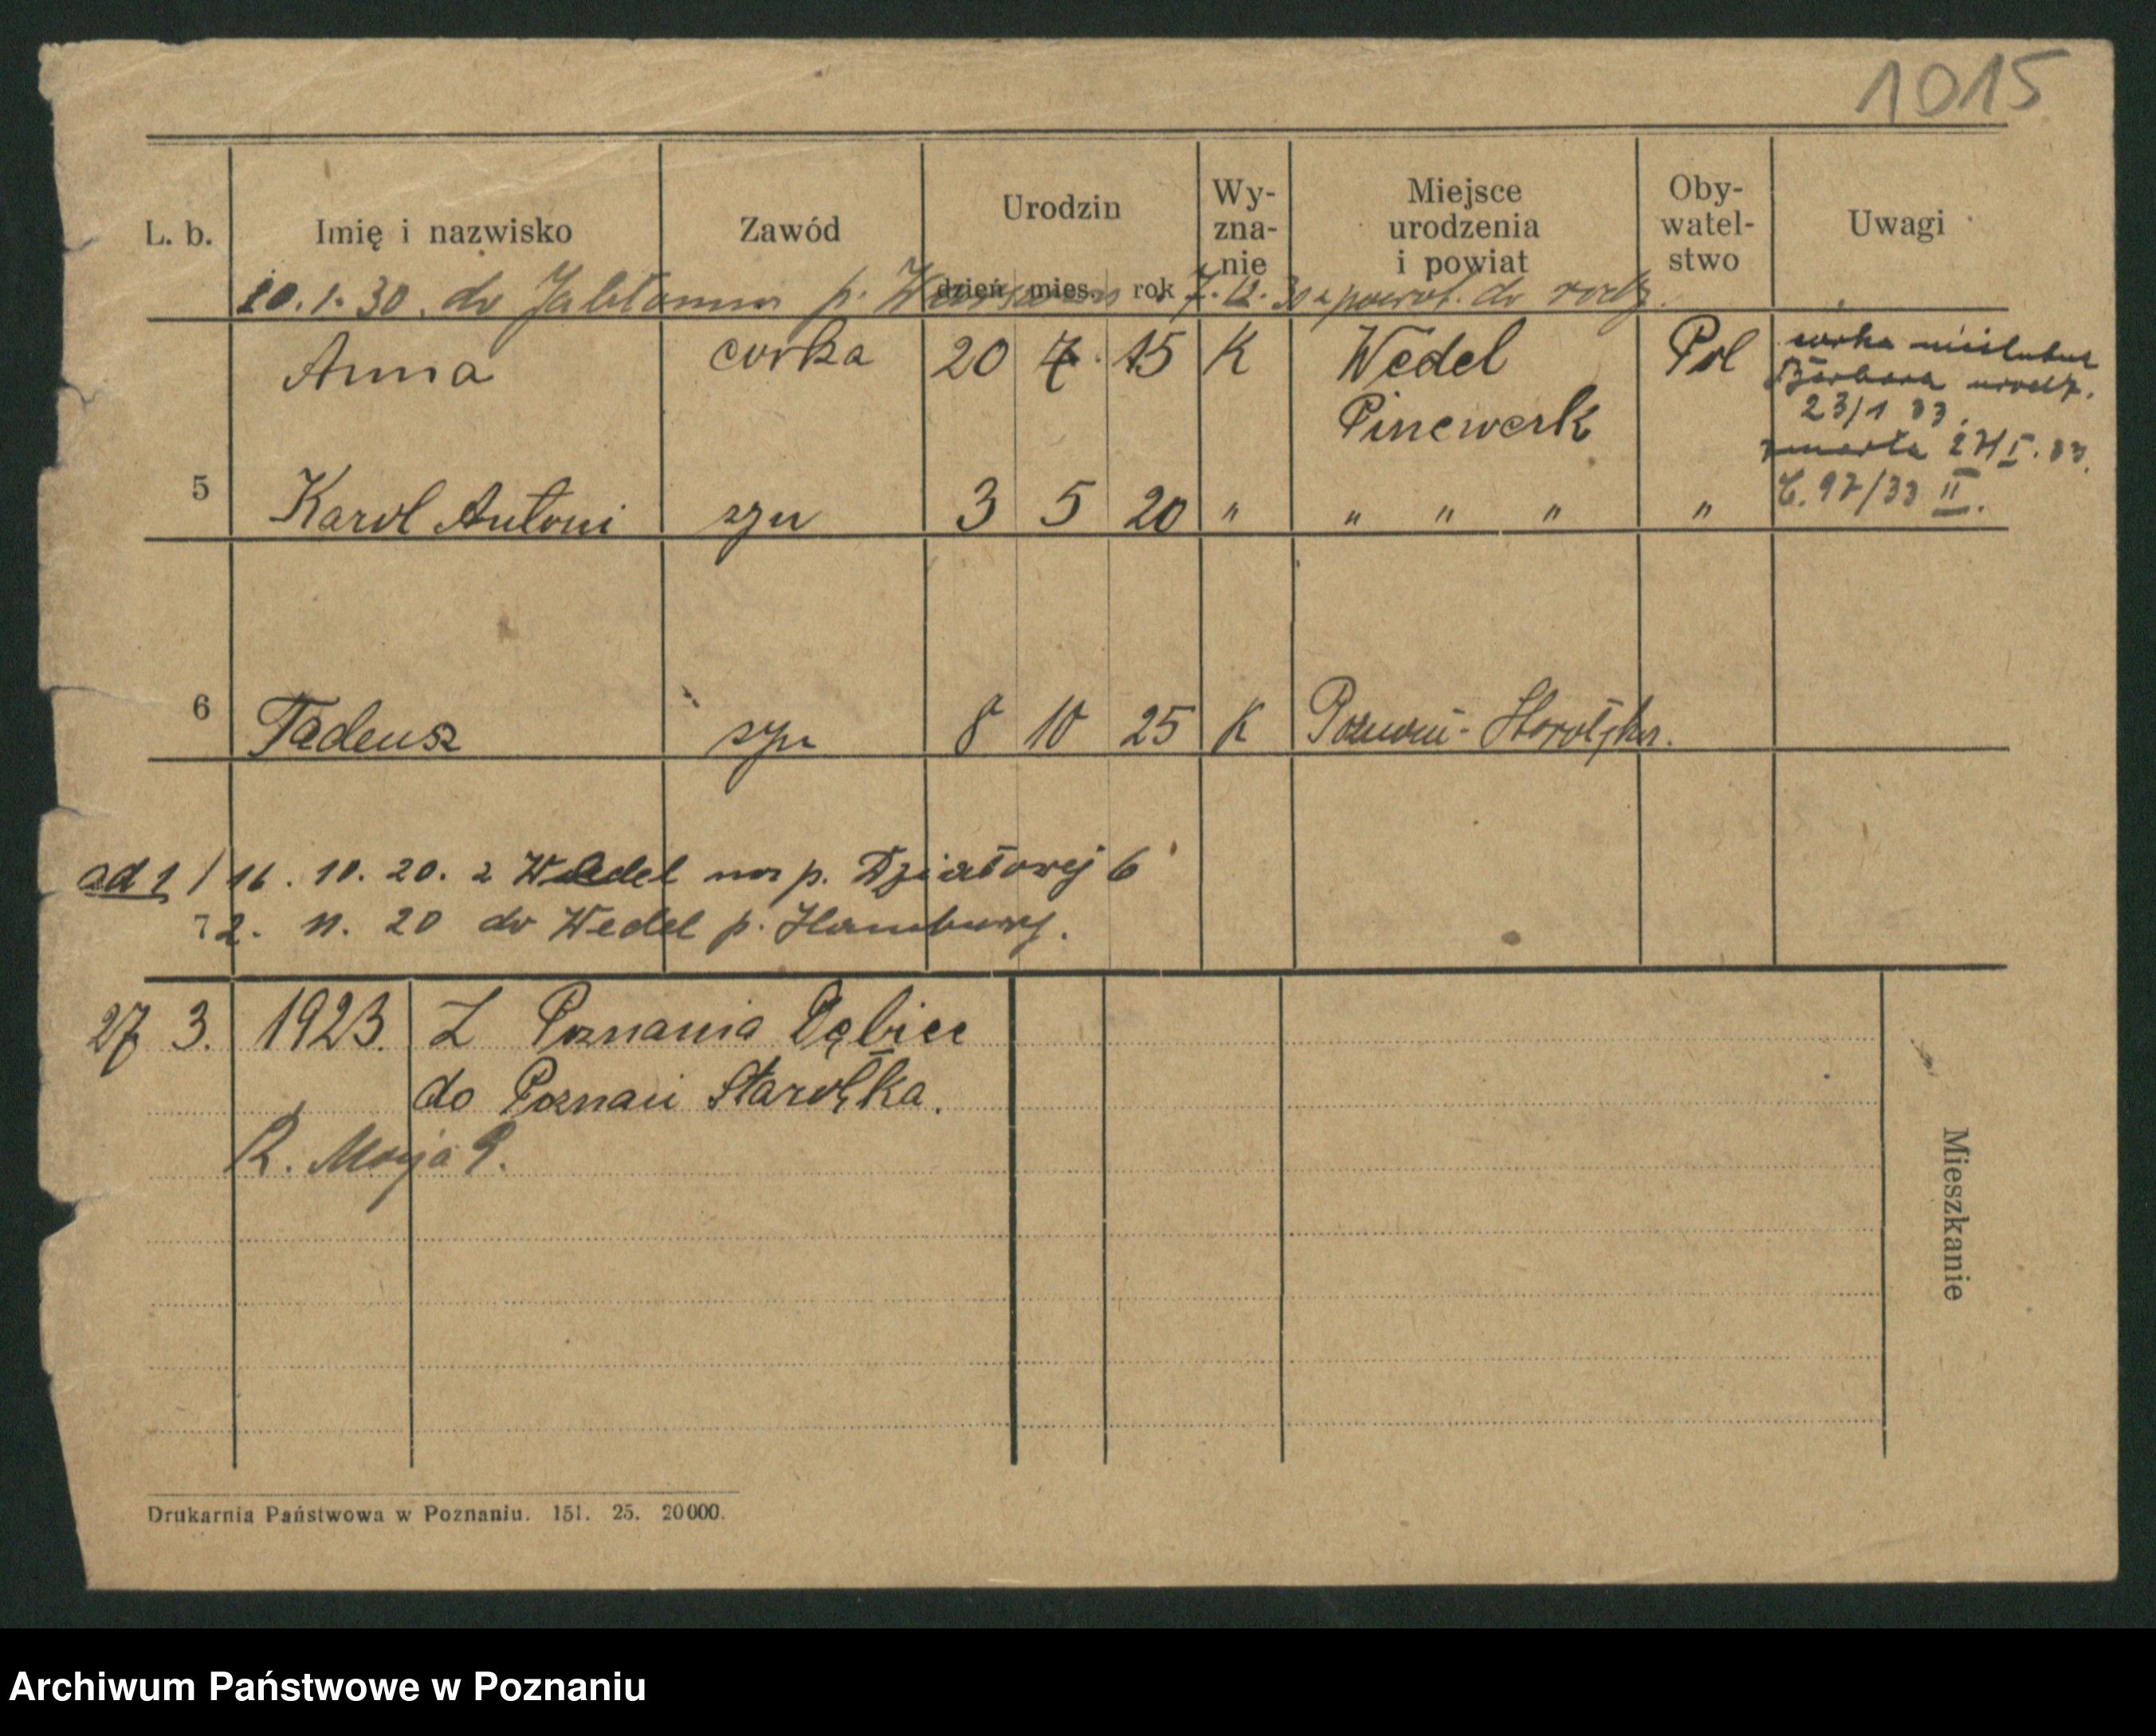 1015
L. b. Imię i nazwisko Zawód Urodzin dzień mies. rok Wy-zna-nie Miejsce urodzenia i powiat Oby-watel-stwo Uwagi
10. 1. 30. do Jabłonna p. Warszawa 7. 12. 30 z powrot. do rodz.
Anna córka 20 7. 15 K Wedel Pol córka nieślubna
Barbara urodz.
Pinewerk 23/1 33.
zmarła 27/I. 33.
5 Karol Antoni syn 3 5 20 " " " " " C. 97/33 II.
6 Tadeusz syn 8 10 25 K Poznań-Starołęka.
ad 1 / 16. 10. 20. z Wedel na p. Działowej 6
72. 11. 20 do Wedel p. Hamburg.
27 3. 1923. Z Poznania Dębiec
do Poznań Starołęka.
R. Maja 9.
Mieszkanie
Drukarnia Państwowa w Poznaniu. 151. 25. 20000.
Archiwum Państwowe w Poznaniu